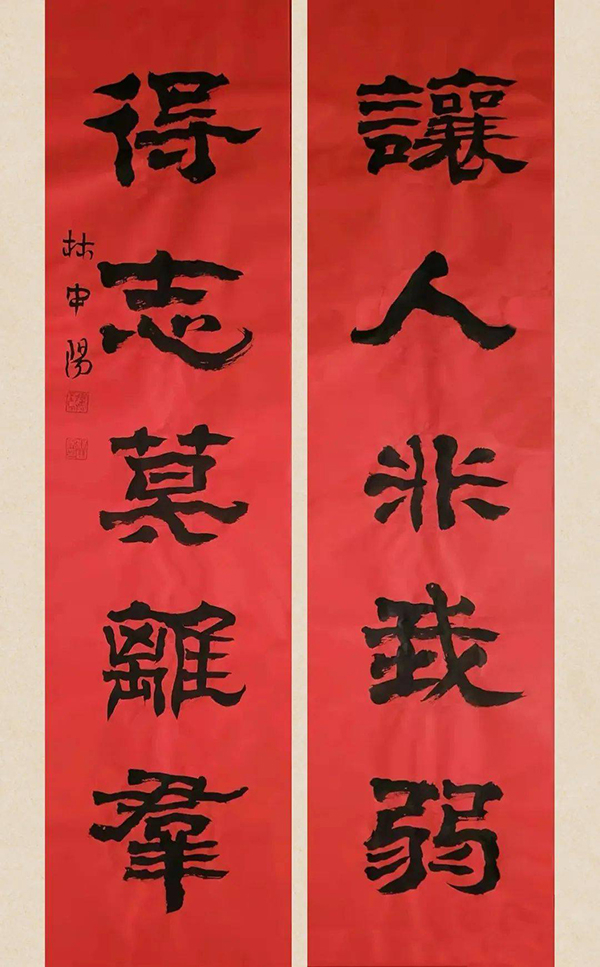 讓人非我弱
得志莫離羣
林申陽